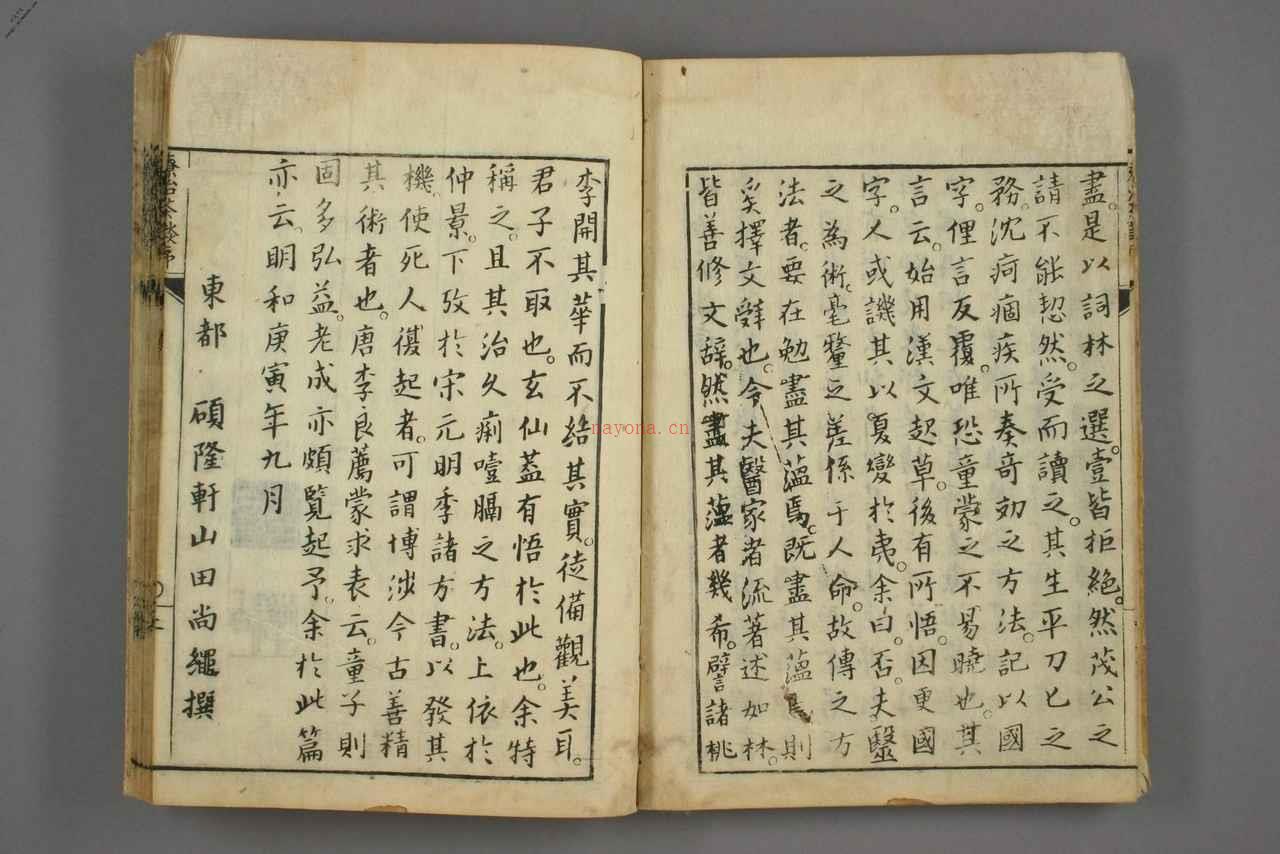 盡。是以詞林之選。壹皆拒絕。然茂公之
請不能恝然。受而讀之。其生平刀匕之
務。沈疴痼疾所奏奇効之方法。記以國
字。俚言反覆。唯恐童蒙之不易曉也。其
言云。始用漢文起草。後有所悟。因更國
字。人或譏其以夏變於夷。余曰。否。夫醫
之為術。毫釐之差係于人命。故傳之方
法者。要在勉盡其薀焉。既盡其薀焉則
奚擇文辭也。今夫醫家者流著述如林。
皆善修文辭。然盡其薀者幾希。譬諸桃
李開其華而不結其實。徒備觀美耳。
君子不取也。玄仙蓋有悟於此也。余特
稱之。且其治久痢噎膈之方法。上依於
仲景。下攷於宋元明季諸方書。以發其
機。使死人復起者。可謂博涉今古善精
其術者也。唐李良薦蒙求表云。童子則
固多弘益。老成亦頗覽起予。余於此篇
亦云。明和庚寅年九月
東都 碩隆軒山田尚繩撰
療治茶談序
nayona.cn